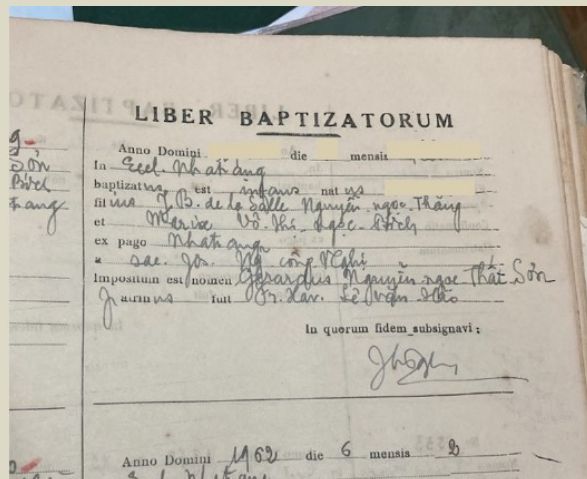 LIBER BAPTIZATORUM
Anno Domini die mensis
In Eccl. Nhatrang
baptizatus est infans natus
filius J.B. de la Salle Nguyễn ngọc Thăng
et Mariae Võ thị Ngọc Bích
ex pago Nhatrang
a sac. Jos. Ng công Nghi
Impositum est nomen Gérardus Nguyễn ngọc Thái Sơn
Patrinus fuit Fr. Xav. Lê văn
In quorum fidem subsignavi :
Anno Domini 1962 die 6 mensis 2
Sơn
Bích